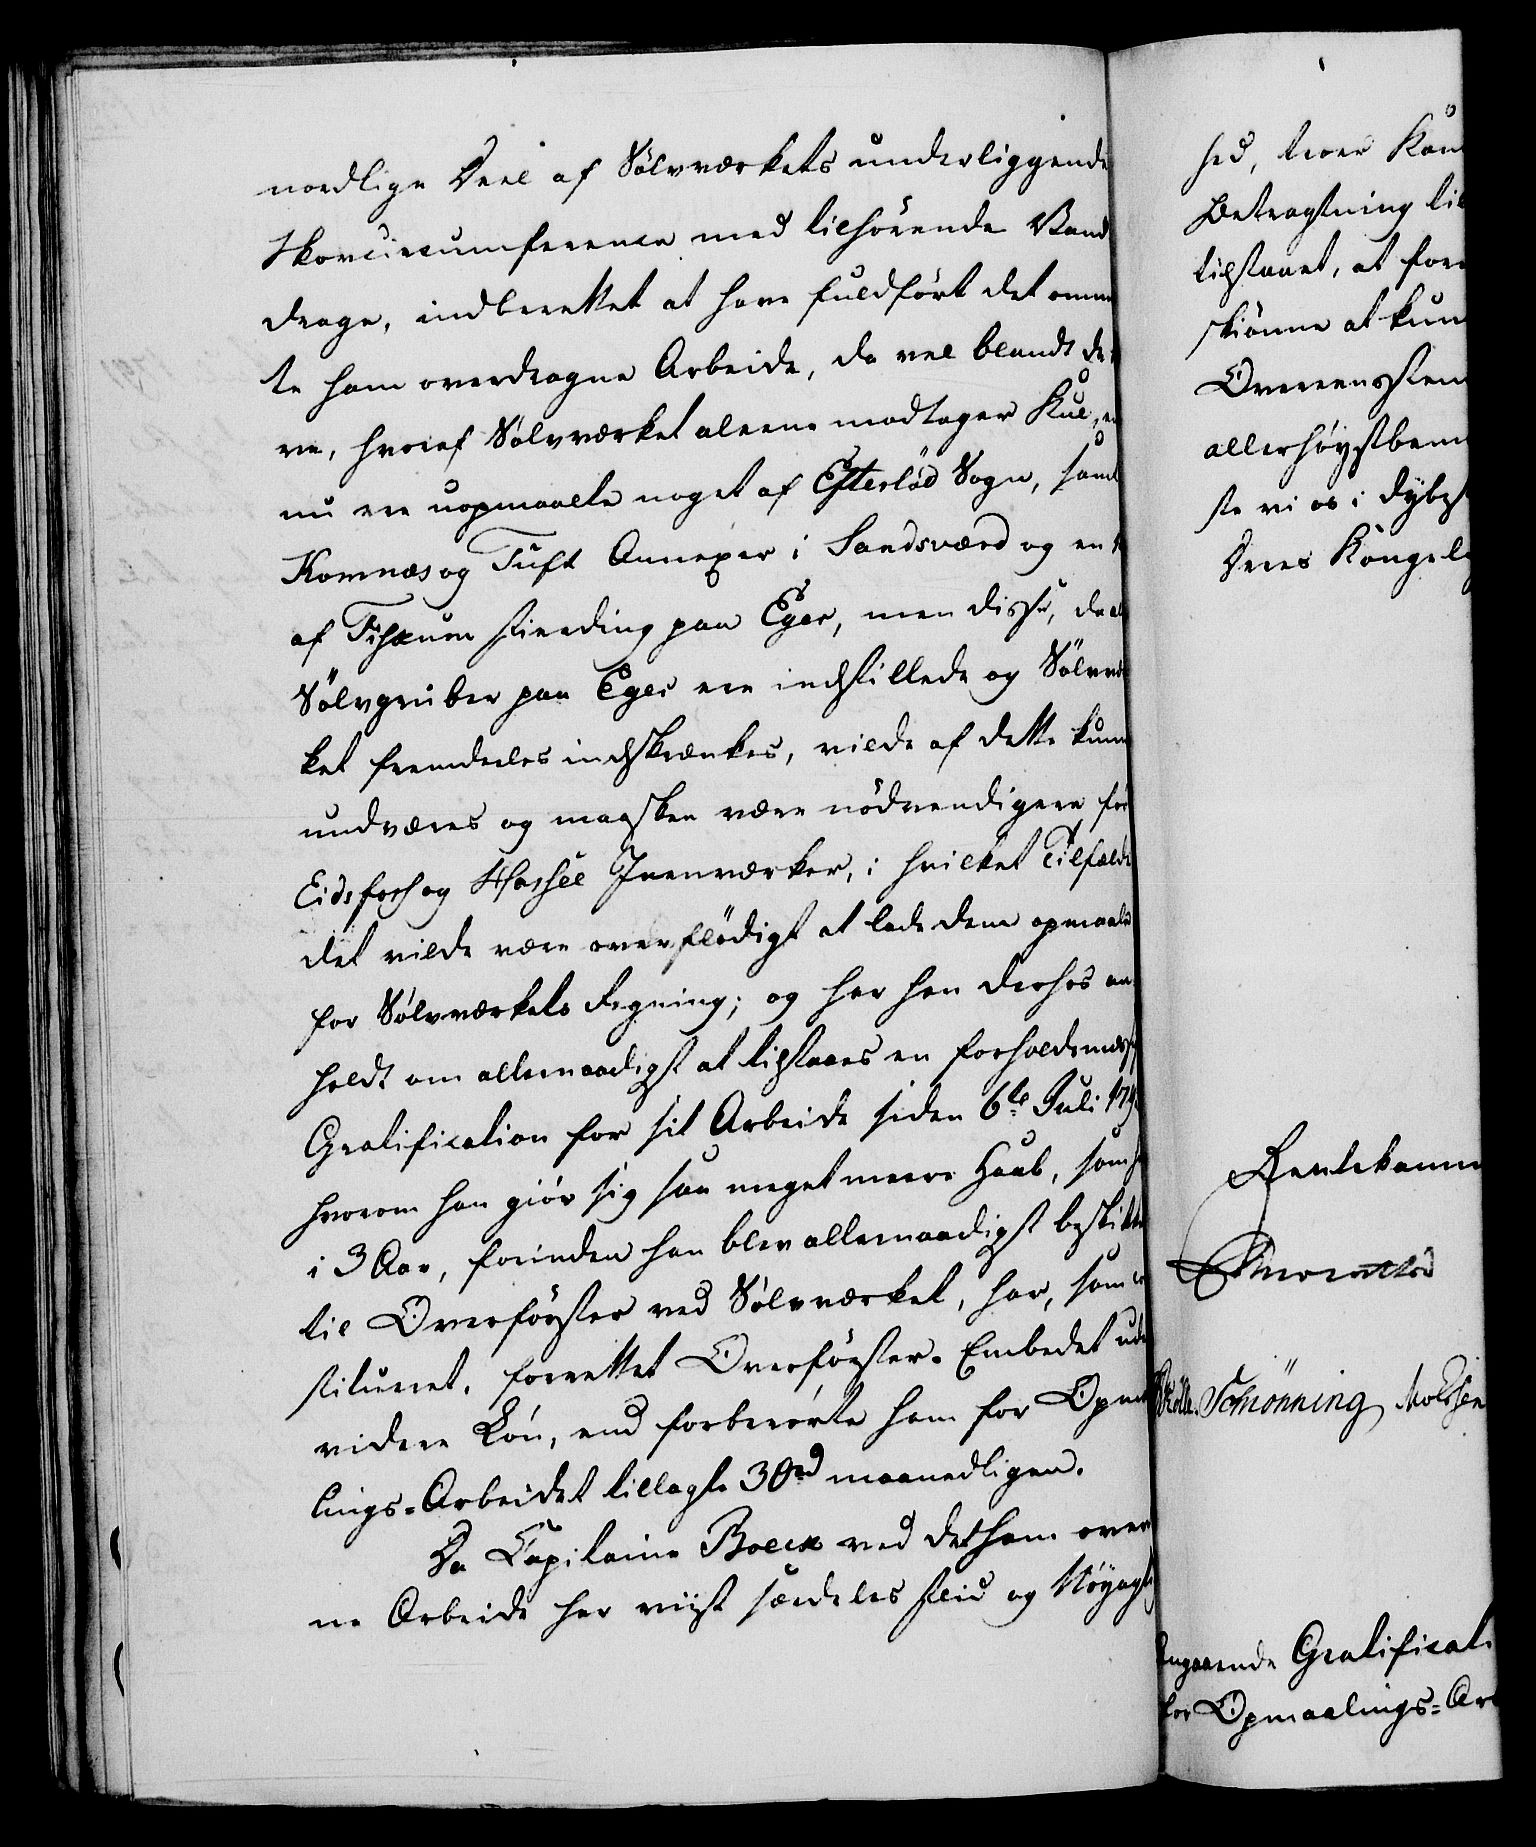 nordlige Deel af Sølvværkets underliggende
Skovcircumference med tilhørende Vand
drage, indberettet at have fuldført det omme
te ham overdragne Arbeide, da vel blandt de
re, hvoraf Sølvværket aleene modtager Kul, en
nu ere uopmaalte noget af Efterlød Sogn, samt
Komnæs og Tuft Annexer i Sandsværd og en
af Fiskum fierding paa Eger, men disse, da al
Sølvgruber paa Eger ere indstillede og Sølvvær
ket fremdeeles indskrænkes, vilde af dette kunne
undværes og maaskee være nødvendigere for
Eidsfos og Hassel Jernværker, i hvilket Tilfælde
det vilde være overflødigt at lade dem opmaale
for Sølvværkets Regning; og har han derhos an
holdt om allernaadigst at tilstaaes en forholdsmæss
Gratification for sit Arbeide siden 6te Juli 179
hvorom han giør sig saa meget meere Haab, som h
i 3 Aar, forinden han blev allernaadigst beskikke
til Overførster ved Sølvværket, har, som con
stitueret, forrettet Overførster-Embedet ude
videre Løn, end forberørte ham for Opmaa
lings-Arbeidet tillagte 30rd maanedligen.
Da Capitaine Boeck ved det ham over
ne Arbeide har viist særdeles Fliid og Nøyagti
hed, troer Kam
Betragtning til
tilstaaet, at for
skiønne at kun
Overeensstem
allerhøystbem
ste vi os i dybes
Deres Kongel
Rentekamm
Schønning
Angaaende Gratificat
for Opmaalings-Ar